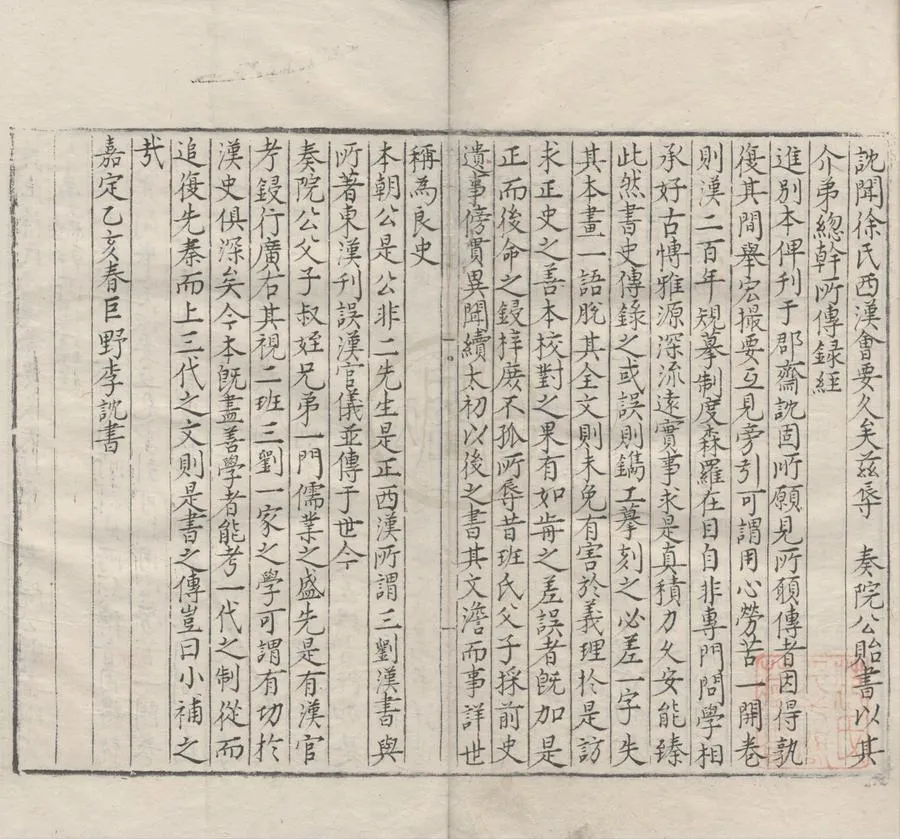 詵聞徐氏西漢會要久矣茲辱　奏院公貽書以其
介弟總幹所傳録經
進别本俾刊于郡齋詵固所願見所願傳者因得孰
復其間舉宏撮要互見旁引可謂用心勞苦一開卷
則漢二百年規摹制度森羅在目自非專門問學相
承好古博雅源深流遠實事求是真積力久安能臻
此然書史傳錄之或誤則鐫工摹刻之必差一字失
其本畫一語脫其全文則未免有害於義理於是訪
求正史之善本校對之果有如毎之差誤者旣加是
正而後命之鋟梓庻不孤所辱昔班氏父子採前史
遺事傍貫異聞續太初以後之書其文澹而事詳世
稱為良史
本朝公是公非二先生是正西漢所謂三劉漢書與
所著東漢刊誤漢官儀並傳于世今
奏院公父子叔姪兄弟一門儒業之盛先是有漢官
考鋟行廣右其視二班三劉一家之學可謂有功於
漢史俱深矣今本旣盡善學者能考一代之制從而
追復先秦而上三代之文則是書之傳豈曰小補之
㢤
嘉定乙亥春巨野李詵書